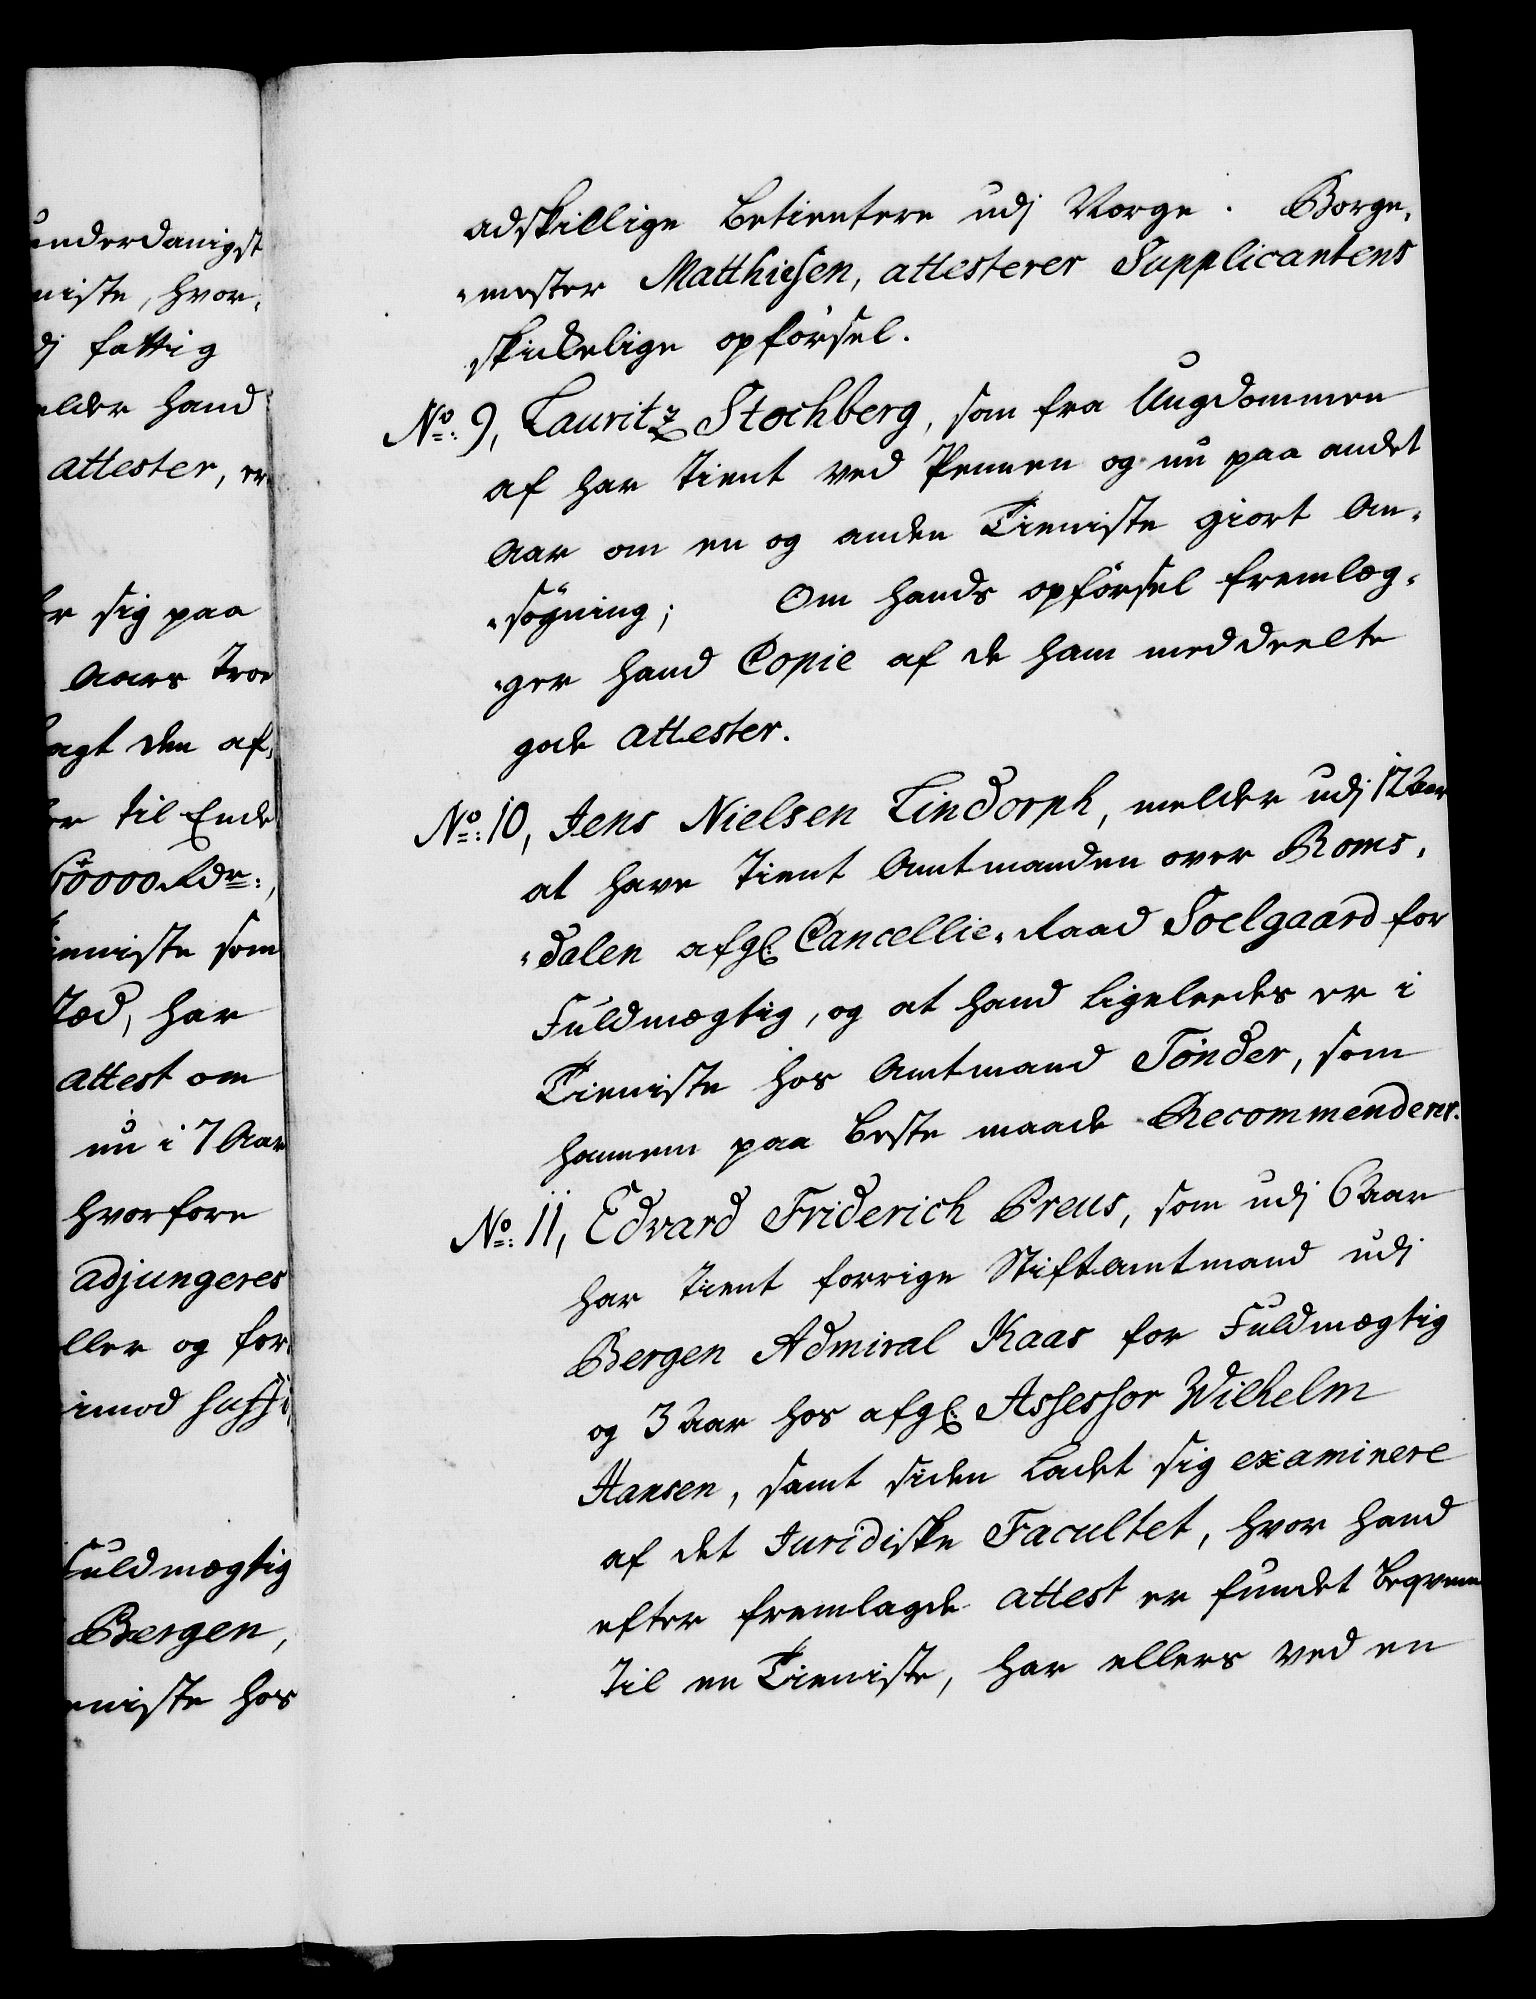 underdanigst
niste, hvor,
dj fattig
elder hand
attester, er
r sig paa
Aars Troe
agt den af,
er til Ende
60000 Rdr:,
ieniste som
Stæd, har
attest om
nu i 7 Aar
hvorfore
adjungeres
ller og for
imod
Fuldmægtig
Bergen,
eniste hos
adskillige betientere udj Norge. Borge,
,mester Matthiesen, attesterer Supplicantens
skickelige opførsel.
No: 9, Lauritz Stochberg, som fra Ungdommen
af har tient ved Pennen og nu paa andet
Aar om en og anden Tieniste giort An,
,søgning; Om hands opførsel fremlæg,
,ger hand Copie af de ham meddeelte
gode attester.
No: 10, Jens Nielsen Lindorph, melder udj 12 Aar
at have tient Amtmanden over Roms,
,dalen afgl: Cancellie,Raad Soelgaard for
Fuldmægtig, og at hand ligeleedes er i
Tieniste hos Amtmand Tønder, som
hannem paa beste maade Recommenderer.
No: 11, Edvard Friderich Preus, som udj 6 Aar
har tient forrige Stiftamtmand udj
Bergen Admiral Kaas for Fuldmægtig
og 3 Aar hos afgl: Assessor Wilhelm
Hansen, samt siden ladet sig examinere
af det Juridiske Facultet, hvor hand
efter fremlagde attest er fundet beqvem
til en Tieniste, har ellers ved en